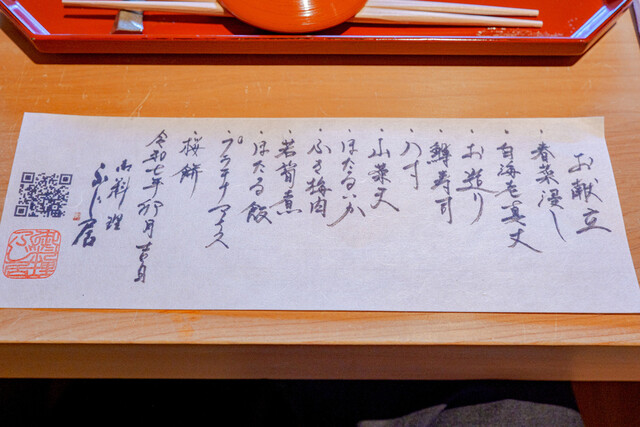 お献立
・春菜浸し
・白海老真丈
・お造り
・鱒寿司
・八寸
・山菜天
・ほたるいか
・ふき梅肉
・若筍煮
・ほたる飯
・プラチナアイス
・桜餅
令和七年卯月吉日
御料理
ふじ居